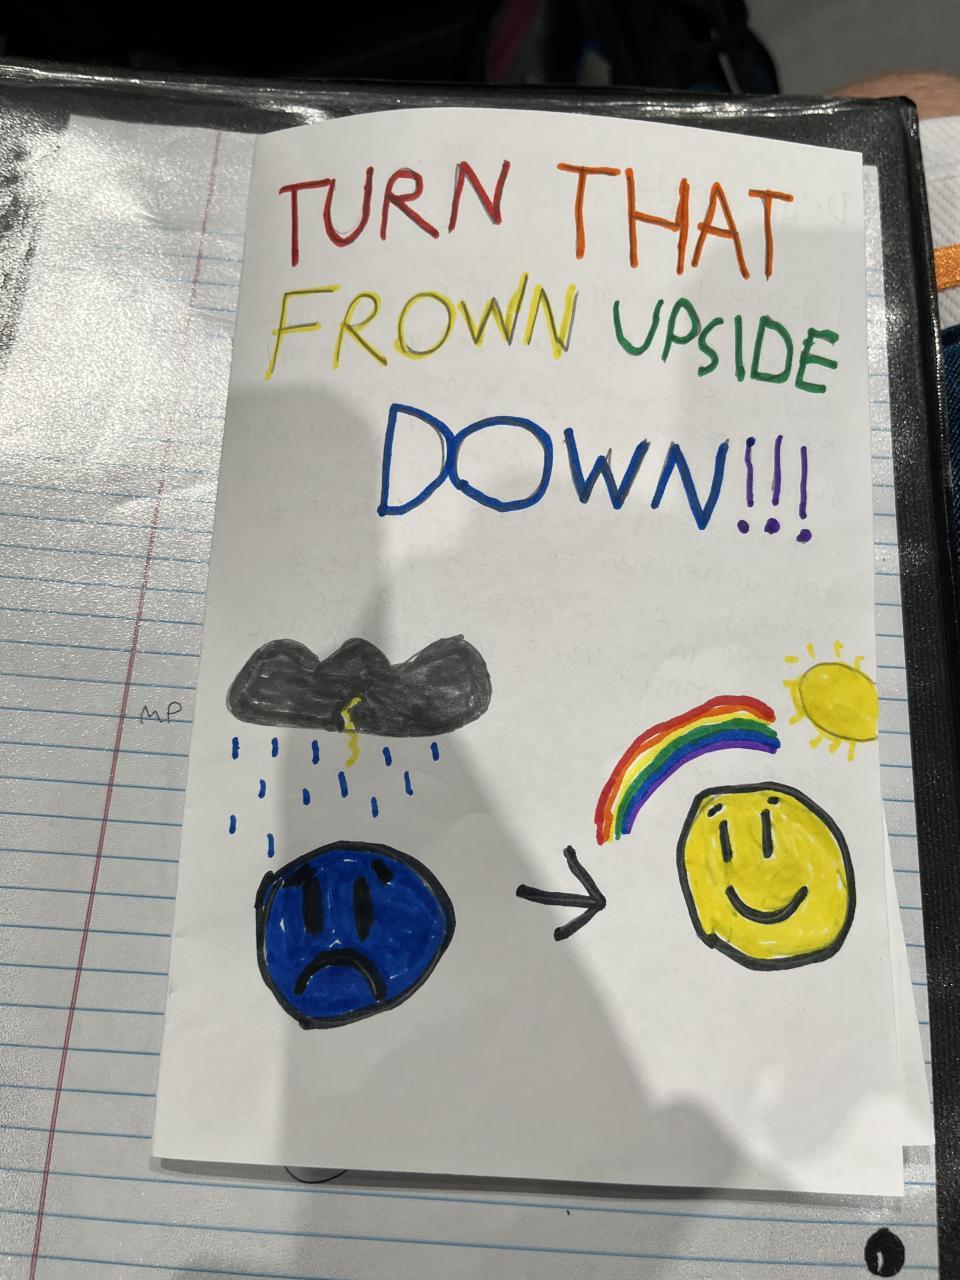 TURN THAT
FROWN UPSIDE
DOWN!!!
MP